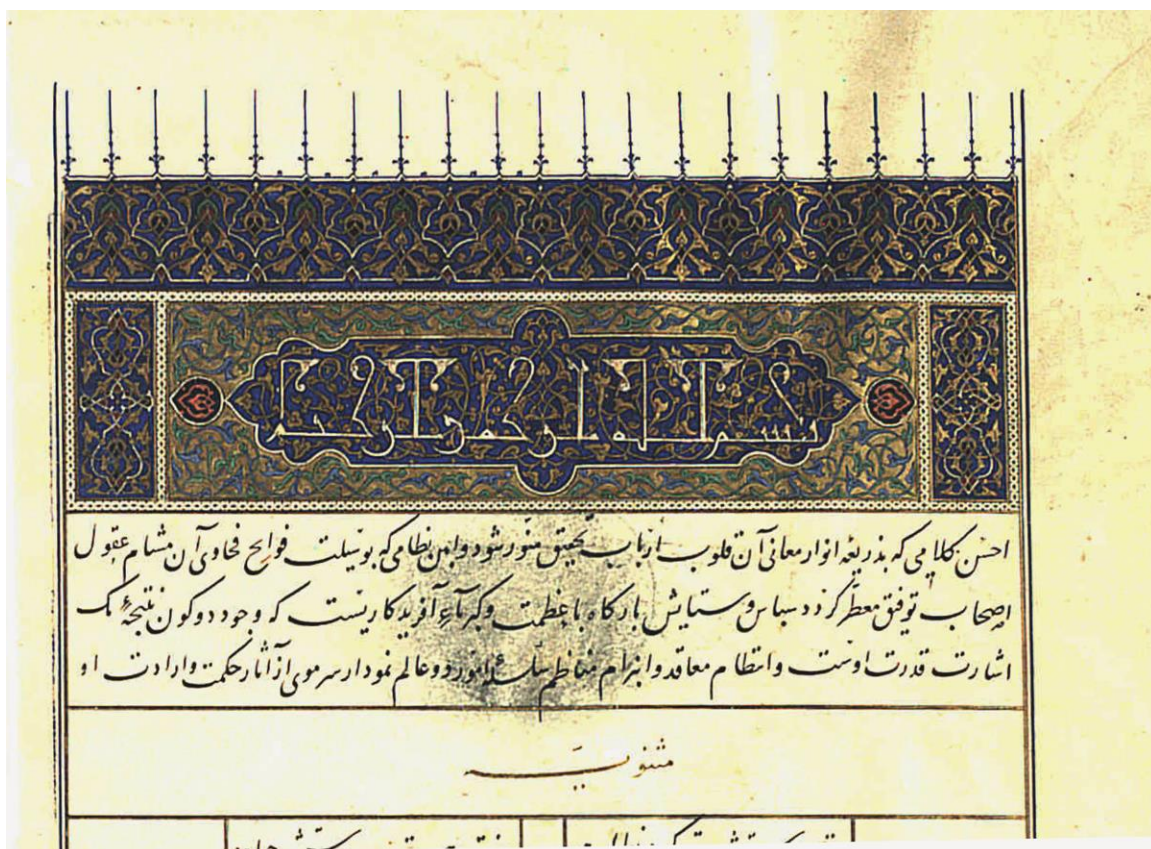 بسم الله الرحمن الرحیم
احسن کلامی که بذریعه انوار معانی آن قلوب ارباب تحقیق منوّر شود و ابین نظامی که بوسیلت فوایح فحاوی آن مشام عقول
اصحاب توفیق معطّر کردد سپاس و ستایش بارکاه با عظمت و کبریاء آفریدکاریست که وجود دو کون نتیجهٔ یک
اشارت قدرت اوست و انتظام معاقد و ابرام مناظم سلسلهٔ امور دو عالم نمودار سر موی از آثار حکمت و ارادت او
مثنویـــه